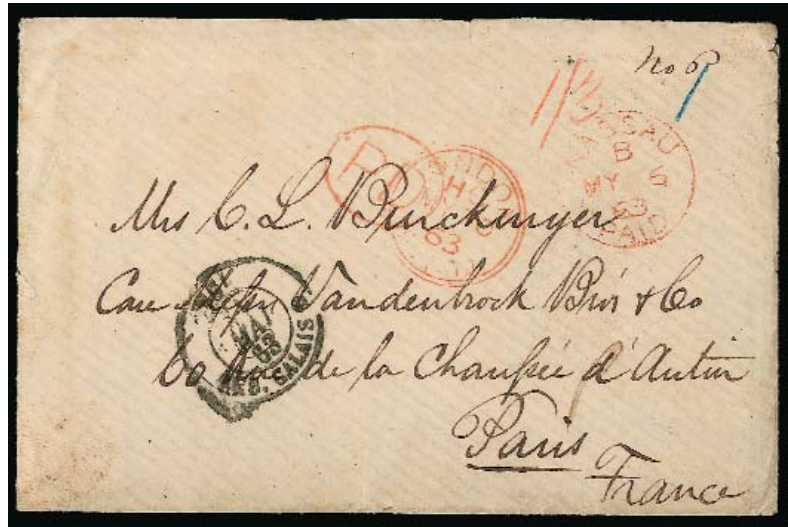 No 8
1/3
NASSAU
B
MY 6
63
PAID
PD
LONDON
H
63
PAID
Mrs C. L. Burckmyer
Care Messrs Vandenbrock Bro's & Co
60 Rue de la Chaussée d'Antin
Paris
France
MAI
63
AMB. CALAIS